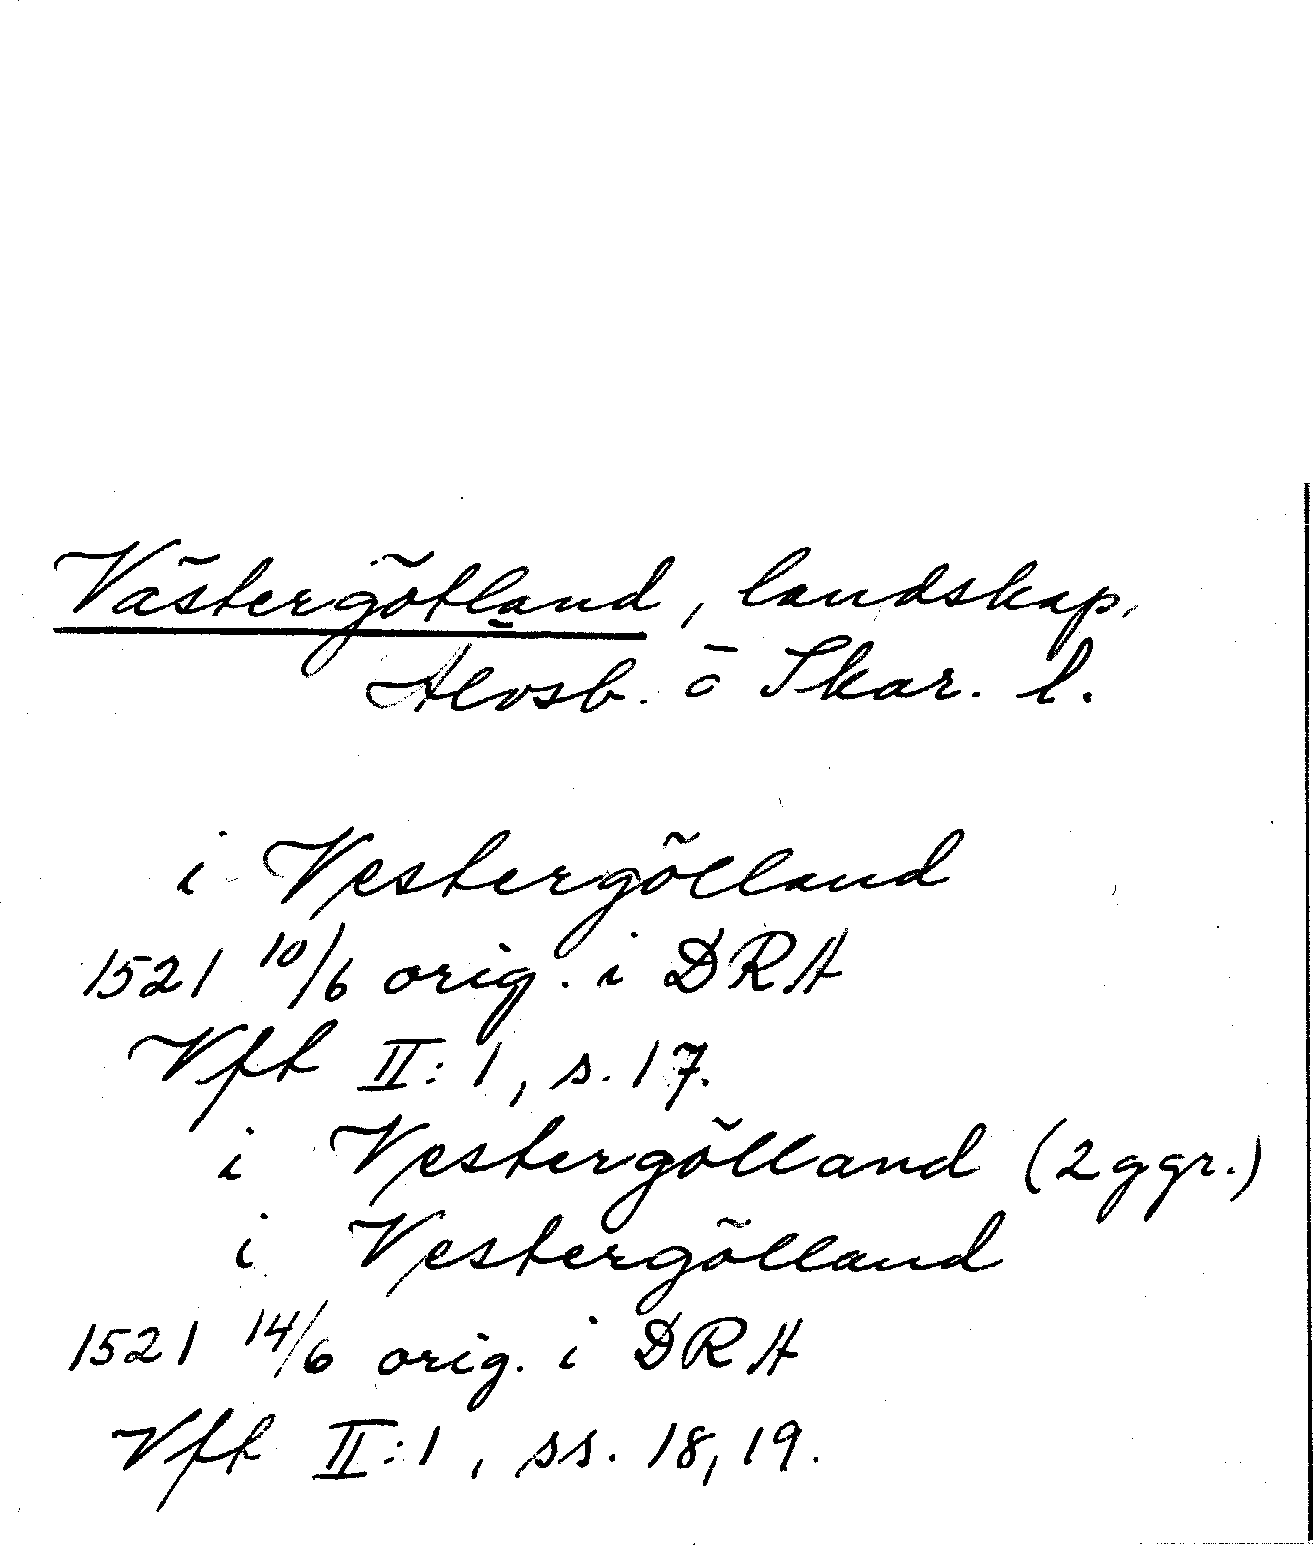 Västergötland, landskap,
Älvsb. o Skar. l.
i Vestergölland
1521 10/6 orig. i DRA
Vft II:1, s. 17.
i Vestergölland (2 ggr.)
i Vestergölland
1521 14/6 orig. i DRA
Vft II:1, ss. 18, 19.